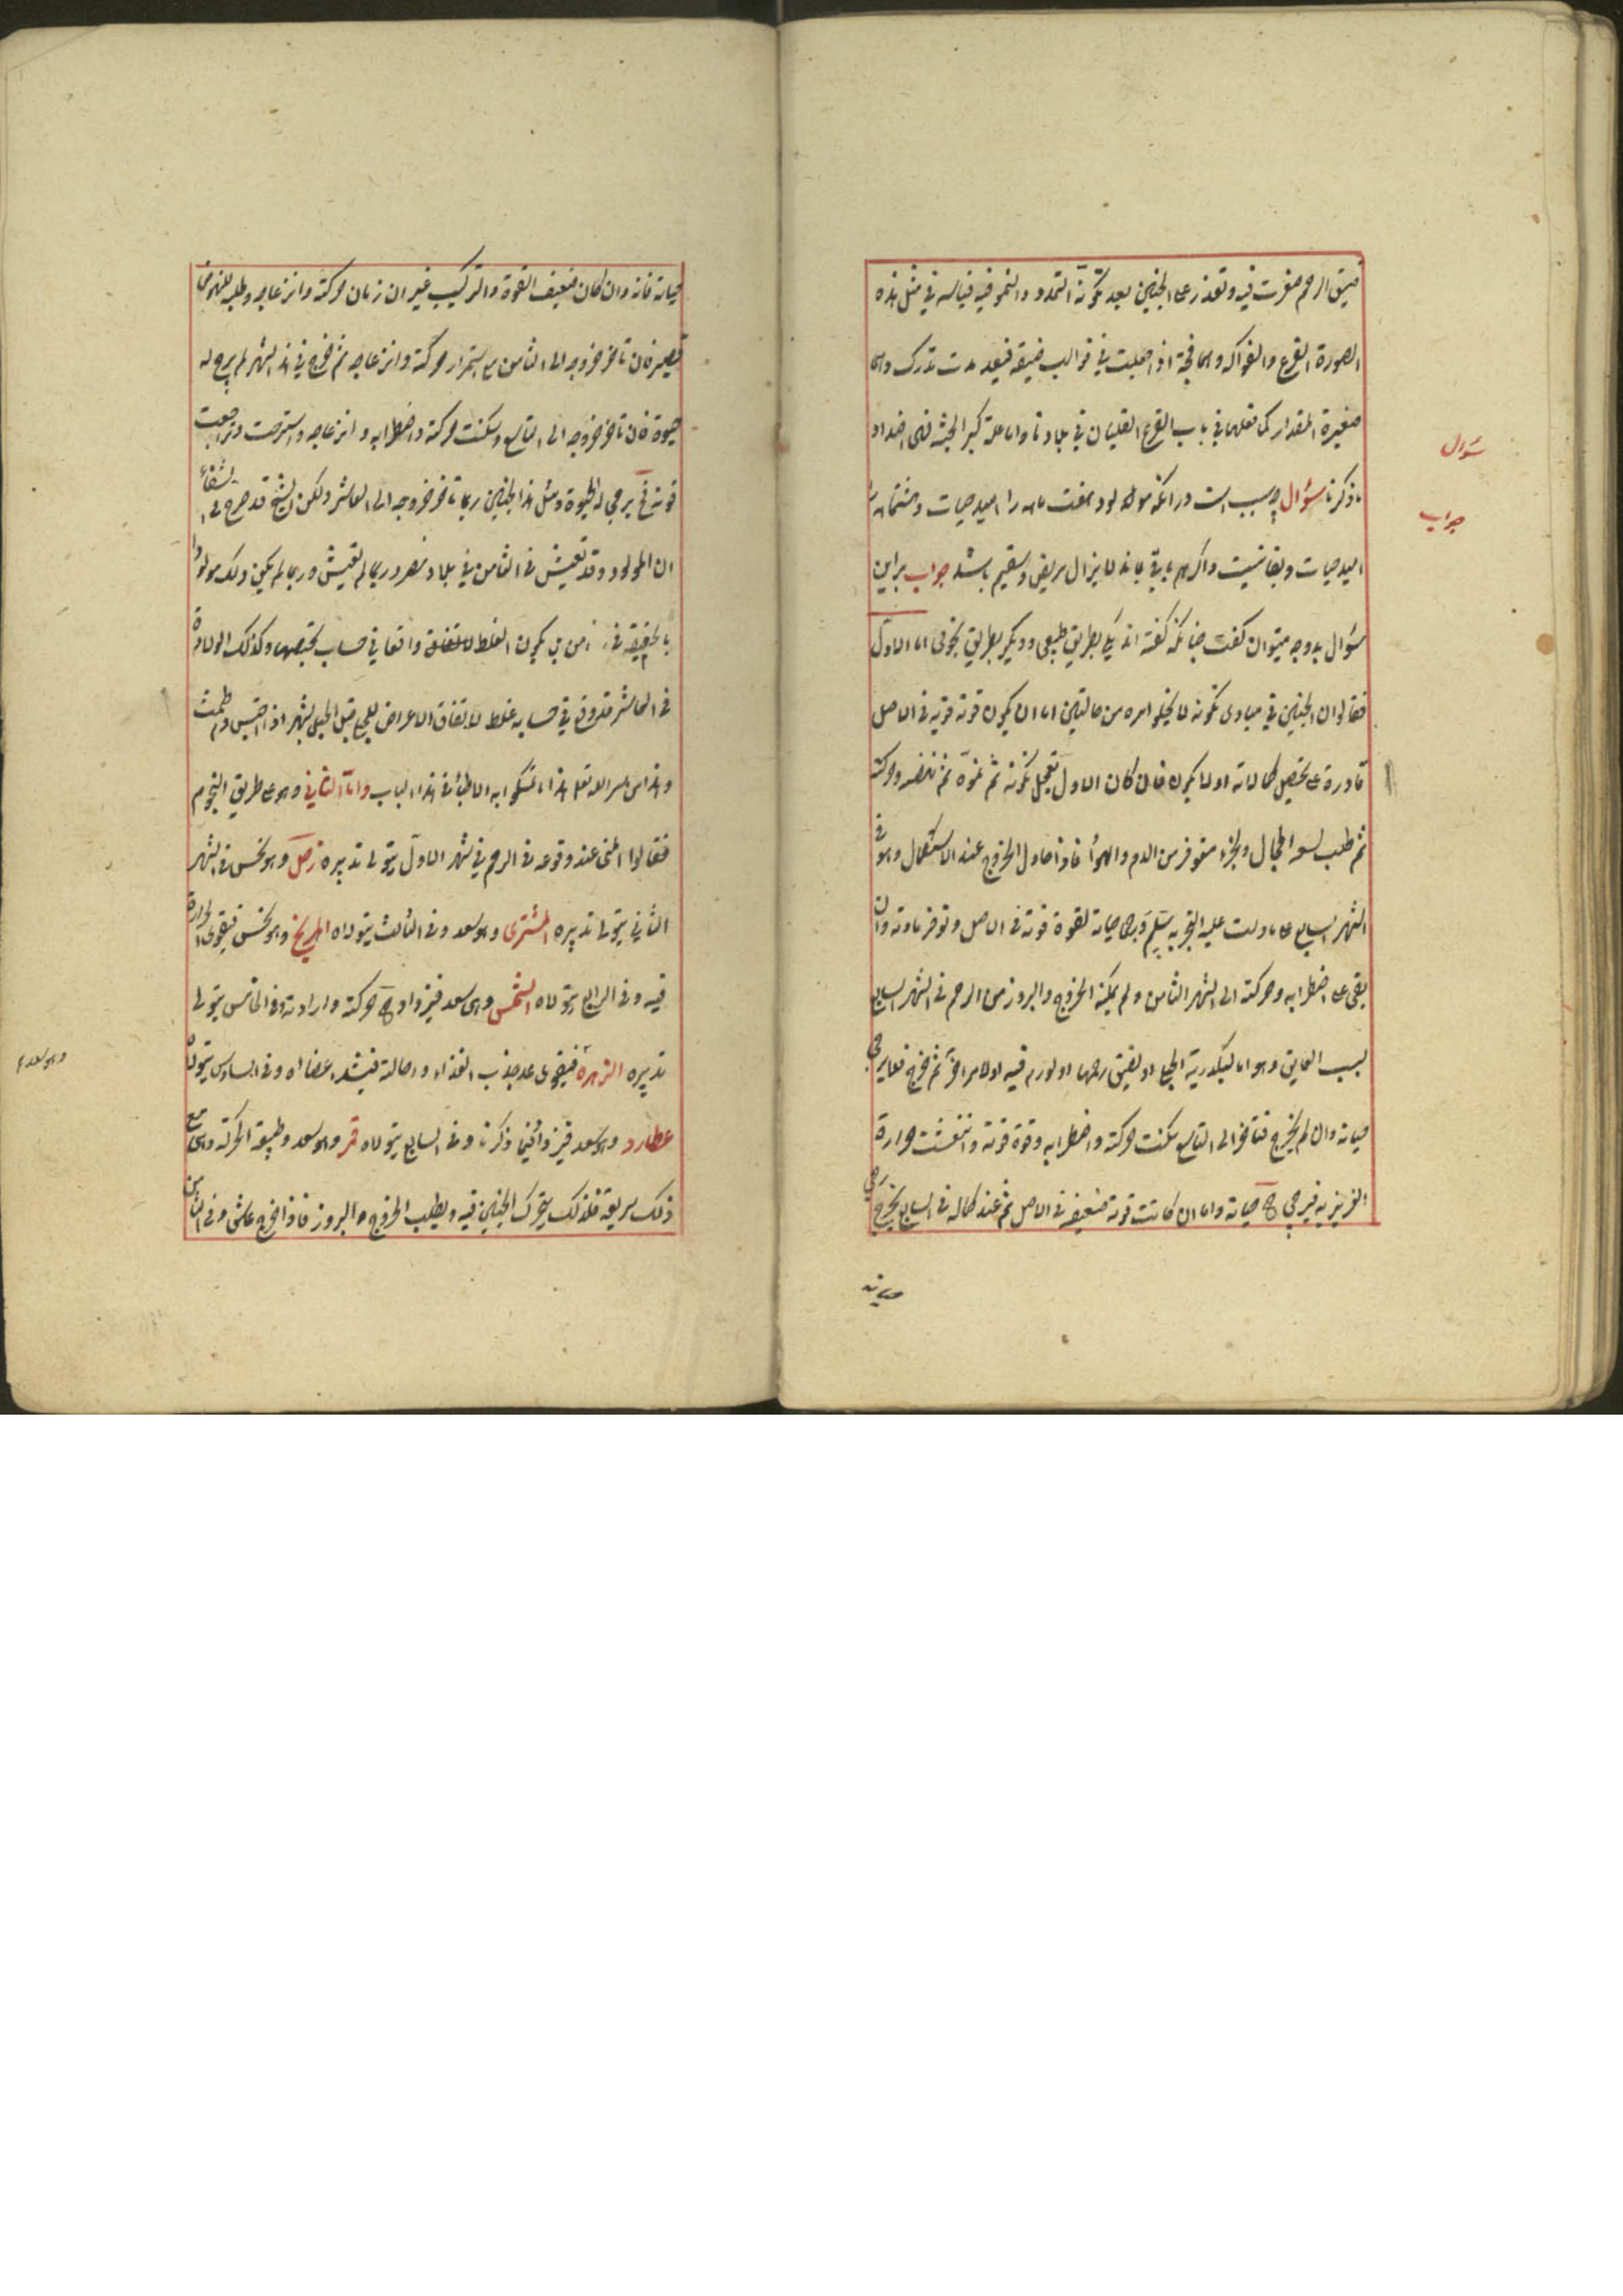 ضيق الرحم صغرت فيه وتعذر على الجنين بعد تكونه التمدد والنمو فيه فياله في مثل هذه
الصورة القرع والفواكه وهى فجة اذا جعلت في قوالب ضيقة فبعد مدت تدرك وهى
صغيرة المقدار كما نعلها في باب القرع القليان في بلادنا واما علة كبر الجثة فهى اضداد
ما ذكرنا سؤال چه سبب است در انكه مولود هفت ماهه را اميد حيات وهشتماهه
اميد حيات وبقا نيست واكر هم باقى بماند لا يزال مريض وسقيم باشد جواب براين
سؤال بدو وجه ميتوان كفت چنانكه كفته اند يكى بطريق طبيعى وديكر بطريق نجومى اما الاول
فقالوا ان الجنين في مبادى تكونه لا يخلو امره من حالتين اما ان يكون قوته قوية في الاصل
قادرة على تحصيل كمالاته اولا يكون فان كان الاول تعجل تكونه ثم نموه ثم وحركته
ثم طلب لسعة المجال ولجزء متوفر من الدم والهواء فاذا حاول الخروج عند الاستكمال وهو في
الشهر السابع على ما دلت عليه التجربة سلم ويرجى حياته لقوة قوته في الاصل وتوفر مادته وان
بقى على اضطرابه وحركته الى الشهر الثامن ولم يمكنه الخروج والبروز من الرحم في الشهر السابع
بسبب العايق وهو اما او لضيق رحمها او لورم فيه او لامر آخر ثم خرج فلا يرجى
حياته وان لم يخرج فتأخر الى التاسع سكنت حركته واضطرابه وقوة قوته وانتعشت حرارة
الغريزيه فيرجى ح حياته واما ان كانت قوته ضعيفة في الاصل ثم عند كماله في السابع يخرج يرجى
حياته
سؤال
جواب
حياته فانه وان كان ضعيف القوة والتركيب غير ان زمان حركته وانزعاجه وطلبه للنهوض
قصير فان تأخر خروجه الى الثامن مع استمرار حركته وانزعاجه ثم خرج في هذا الشهر لم يرج له
حيوة فان تأخر خروجه الى التاسع وسكنت حركته واضطرابه وانزعاجه واستراحت وتراجعت
قوته فح يرجى له الحيوة ومثل هذا الجنين ربما تأخر خروجه الى العاشر ولكن الشيخ قد صرح في الشفاء
ان المولود وقد تعيش في الثامن في بلاد مصر وربما لم تعيش وربما لم يكن ذلك مولودا
بالحقيقة في الثامن بل يكون الغلط للاتفاق واقعا في حساب تخصها وكذلك الولادة
في العاشر قد وقع في حسابه غلط لاتفاق الاعراض قبل الحبل بشهر اذا احتبس وطمث
وهذا من سر الله تعالى هذا ما تمسكوا به الاطباء في هذا الباب واما الثانى وهو على طريق النجوم
فقالوا المنى عند وقوعه في الرحم في شهر الاول يتولى تدبيره زحل وهو نحس في الشهر
الثانى يتولى تدبيره المشترى وهو سعد وفي الثالث يتولاه المريخ وهو نحس فيقوى الحرارة
فيه وفي الرابع يتولاه الشمس وهى سعد فيزداد ح حركته وارادته وفي الخامس يتولى
تدبيره الزهرة فيقوى على جذب الغذاء واحالته فيشد اعضاه وفي السادس يتولاه
عطارد وهو سعد فيزداد فيما ذكرنا وفي السابع يتولاه قمر وهو سعد وطبيعة الحركة وهى مع
ذلك سريعة فلذلك يتحرك الجنين فيه ويطلب الخروج والبروز فاذا خرج عاش وفي الثامن
وهو سعد